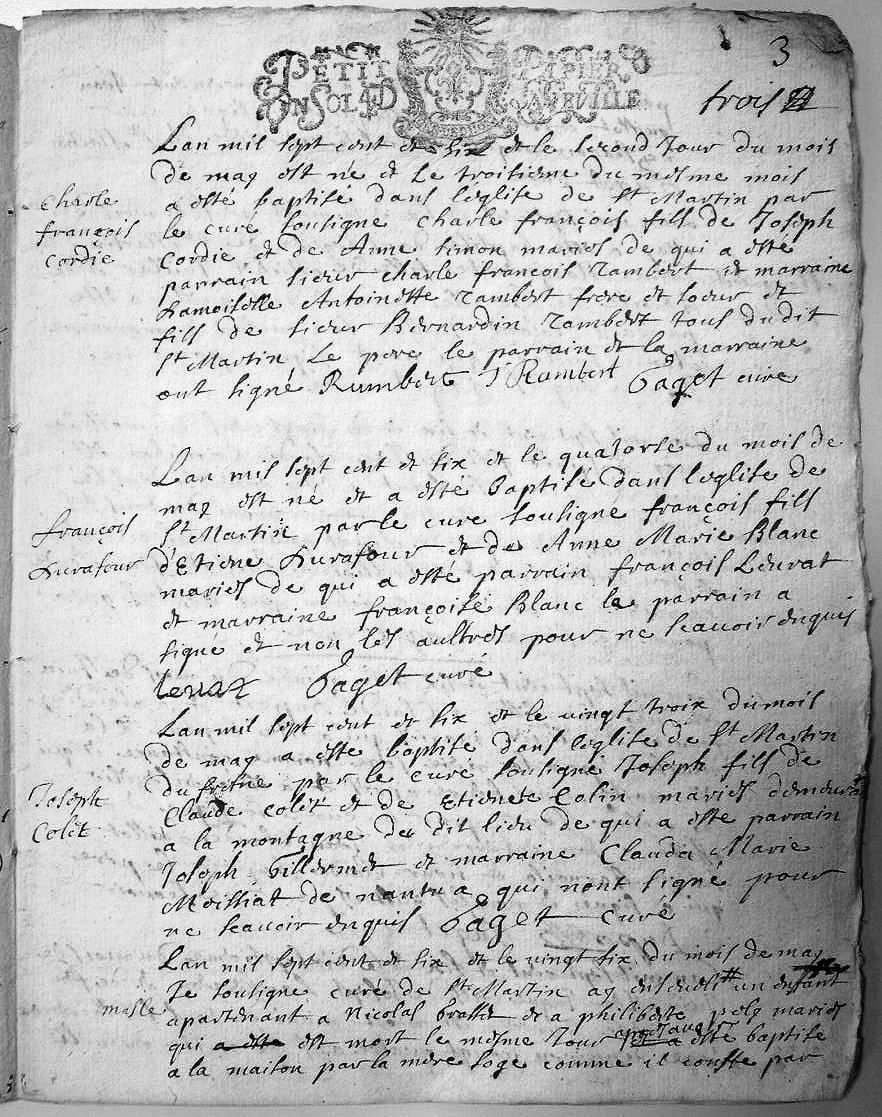 PETIT PAPIER
UN SOL 4 D LA FEUILLE
3
trois
Lan mil sept cent et six et le second Jour du mois
de may est né et Le troitieme du mesme mois
a esté baptisé dans leglise de St Martin par
le curé soutigne Charle françois fils de Joseph
Cordie et de Anne simon mariés de qui a esté
parrain sieur charle françois rambert et marraine
damoiselle Antoinette rambert frere et soeur et
fils de sieur Bernardin rambert tous du dit
St Martin Le pere le parrain et la marraine
ont signé Rambert Rambert Paget curé
Charle
françois
Cordie
Lan mil sept cent et six et le quatorse du mois de
may est né et a esté baptisé dans leglise de
St Martin par le curé soutigne françois fils
d'Etiene durafour et de Anne Marie Blanc
mariés de qui a esté parrain françois Leurat
et marraine françoise Blanc le parrain a
signé et non les aultres pour ne scavoir enquis
Paget curé
françois
durafour
Lan mil sept cent et six et le vingt troix du mois
de may a esté baptisé dans leglise de St Martin
du fresne par le curé soutigné Joseph fils de
Claude colet et de Etienete Colin mariés
a la montagne du dit lieu de qui a esté parrain
Joseph Billermet et marraine Clauda Marie
Moissiat de nantua qui nont signé pour
ne scavoir enquis Paget Curé
Joseph
Colet
Lan mil sept cent et six et le vingt six du mois de may
Je soutigne curé de St Martin ay enseveli # un enfant
apartenant a Nicolas et a philiberte mariés
qui a esté est mort le mesme Jour apres avoir esté baptisé
a la maison par la mere soge comme il conste par
# masle